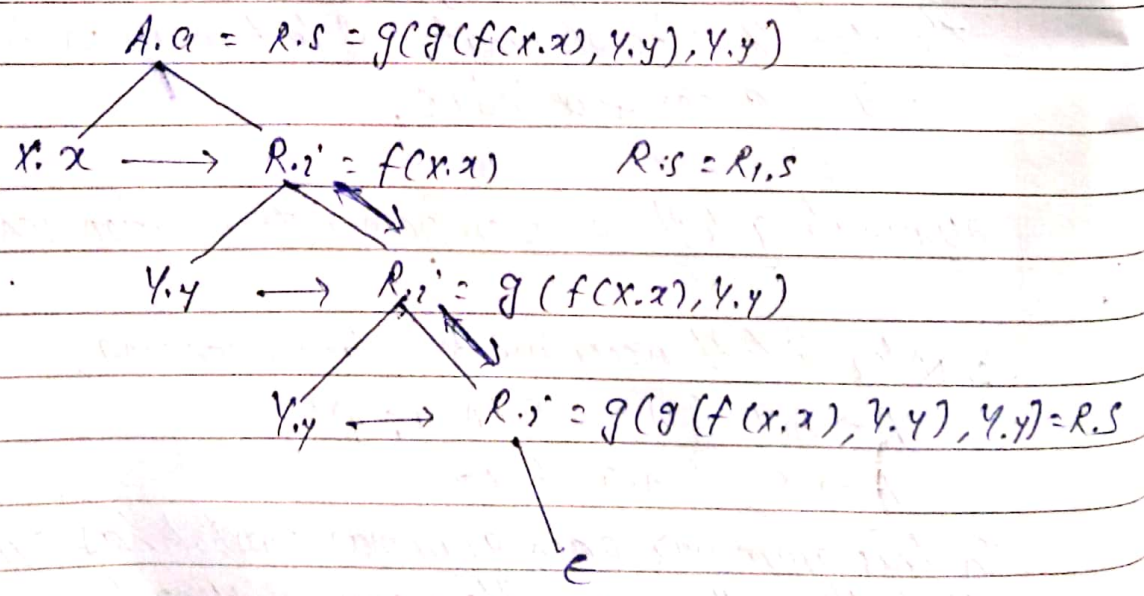 A.a = R.s = g(g(f(X.x), Y.y), Y.y)
X.x → R.i = f(X.x) R.s = R₁.s
Y.y → R.i = g(f(X.x), Y.y)
Y.y → R.i = g(g(f(X.x), Y.y), Y.y) = R.S
ϵ